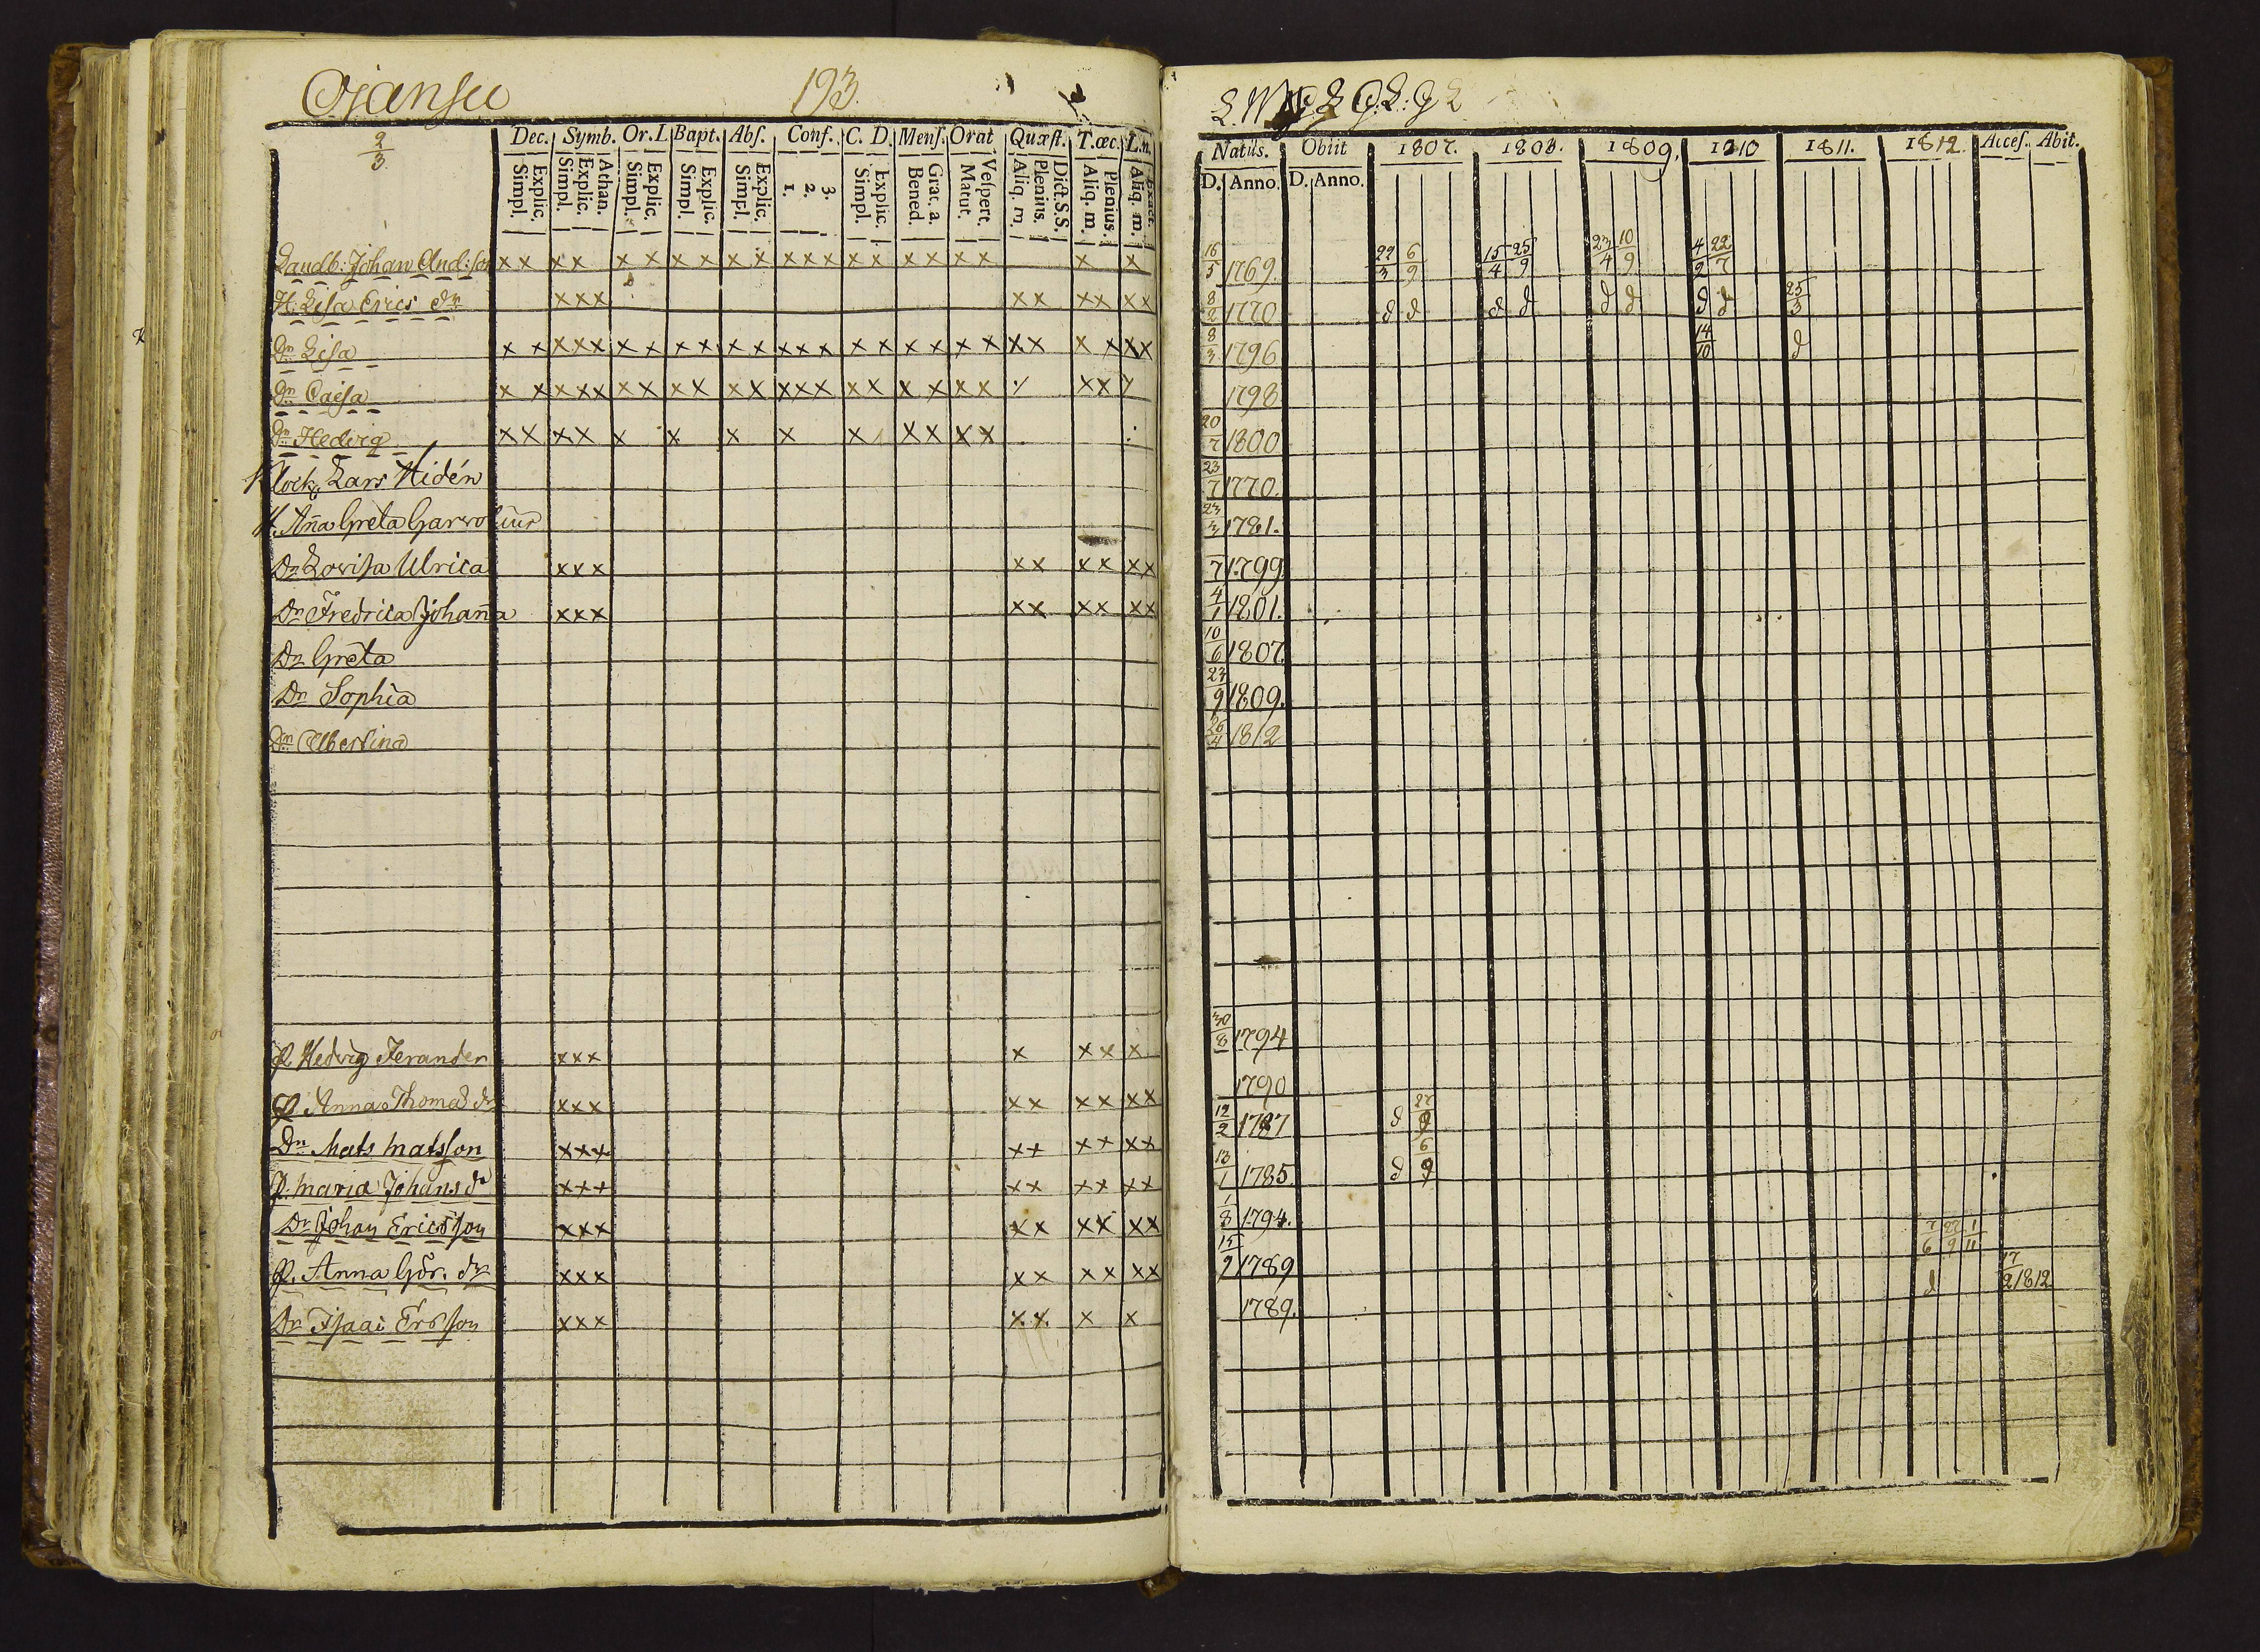 Ojansu 193.
2/3
Dec. Symb. Or. L Bapt. Abſ. Conf. C. D. Menſ. Orat Quæſt. T. œc. L. n.
Explic. Simpl. Athan. Explic. Simpl. Explic. Simpl. Explic. Simpl. Explic. Simpl. 3. 2. 1. Explic. Simpl. Grat. a. Bened. Veſpert. Matut. Dict. S.S. Plenius. Aliq. m. Plenius. Aliq. m Exact. Aliq. m.
Landb: Johan And:son x x x x x x x x x x x x x x x x x x x x x
H. Lisa Erics dr x x x x x x x x x
Dr Lisa x x x x x x x x x x x x x x x x x x x x x x x x x x
Dr Caisa x x x x x x x x x x x x x x x x x x x x x x
Dr Hedvig x x x x x x x x x x x x x
Klock. Lars Hidén
H. Aña Greta Garvolius
Dr Lovisa Ulrica x x x x x x x x x
Dr Fredrica Johaña x x x x x x x x x
Dr Greta
Dr Sophia
Dr Albertina
P. Hedvig Ferander x x x x x x x
P. Anna Thomas dr x x x x x x x x x
Dr Mats Matsson x x x x x x x x x
P. Maria Johans dr x x x x x x x x x
Dr Johan Ericsson x x x x x x x x x
P. Anna Gör. dr x x x x x x x x x
Dr Isaac Ersson x x x x x x x
Natus. Obiit 1807. 1808. 1809. 1810 1811. 1812. Acceſ. Abit.
D. Anno. D. Anno.
16/5 1769. 22/3 6/9 15/4 25/9 23/4 10/9 4/2 22/7
8/2 1770 d d d d d d d d 25/3
8/3 1796 14/10 d
1798
20/7 1800
23/7 1770.
23/3 1781.
7 1799
4/1 1801.
10/6 1807
23/9 1809.
26/4 1812
30/8 1794
1790
12/2 1787 d 27/9
13/1 1785. d 6/9
1/8 1794.
15/9 1789 7/6 27/9 1/11
1789. d 17/2 1812